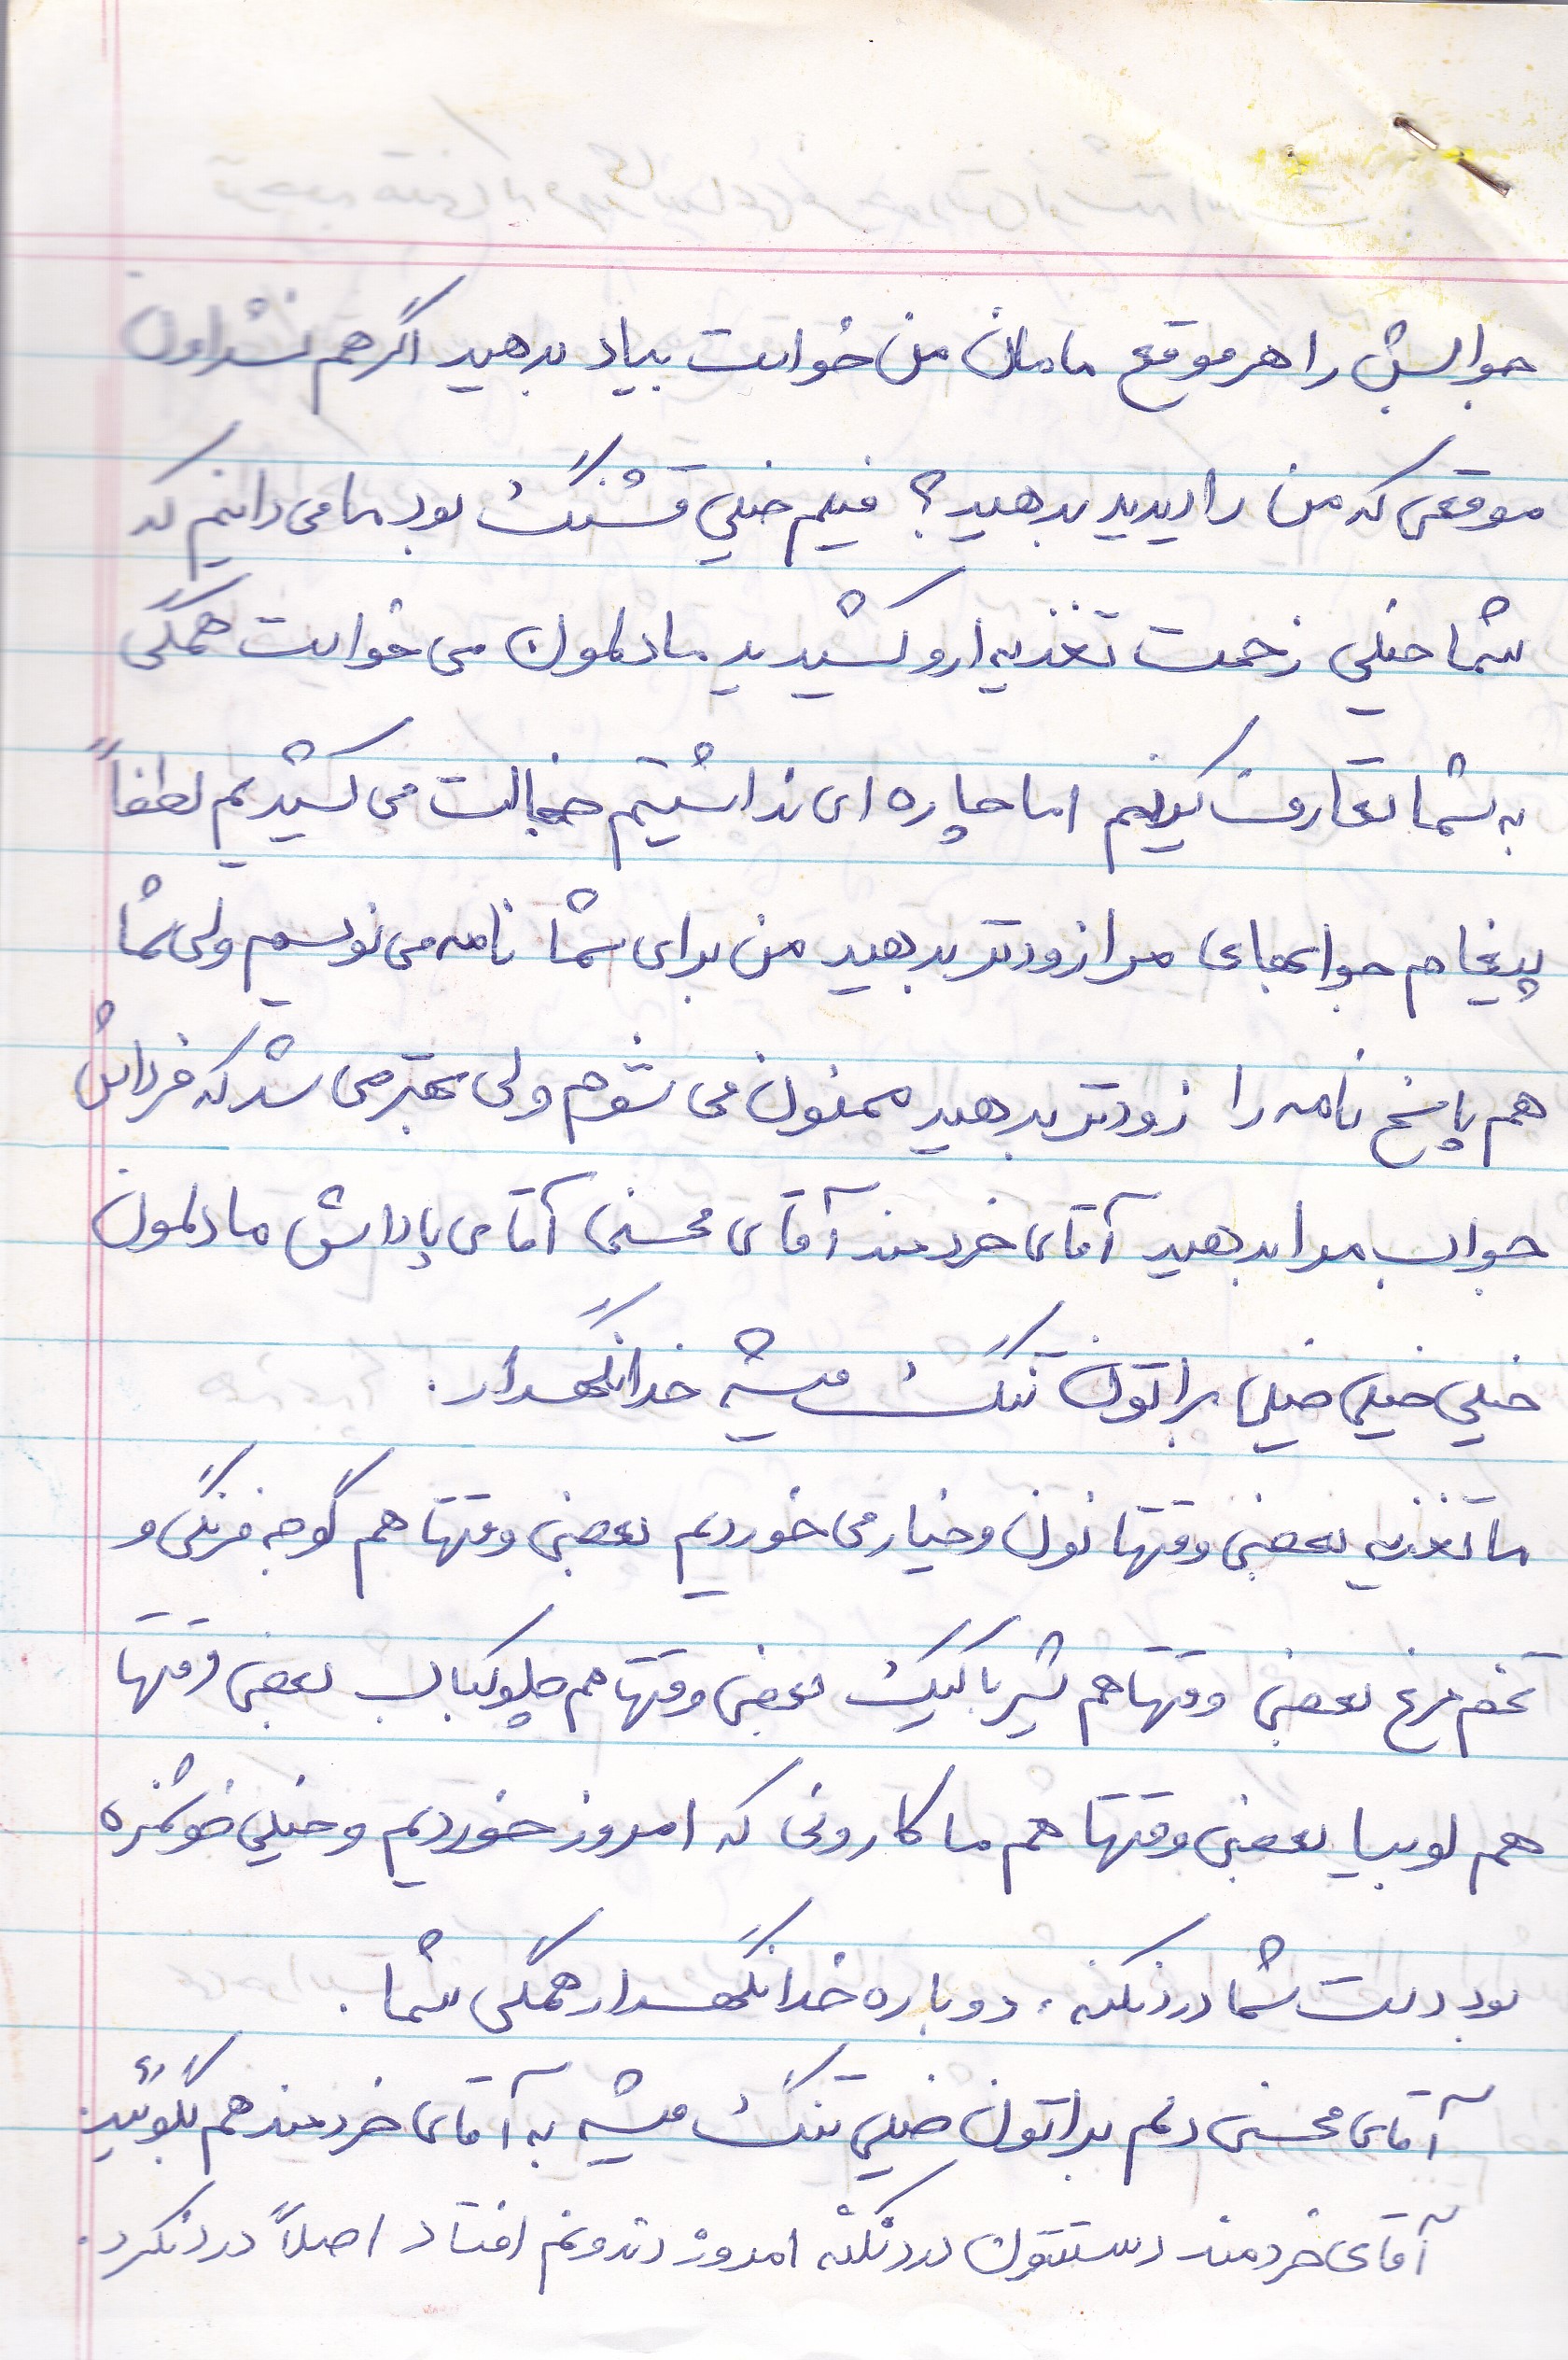 جوابش را هر موقع مامان من خواست بیاد بدهید اگر هم نشد اون
موقعی که من را دیدید بدهید؟ فیلم خیلی قشنگ بود ما می دانیم که
شما خیلی زحمت تغذیه ارو کشیدید ما دلمون می خواست همگی
به شما تعارف کونیم اما چاره ای نداشتیم خجالت می کشیدیم لطفاً
پیغام جوابهای مرا زودتر بدهید من برای شما نامه می نویسم ولی شما
هم پاسخ نامه را زودتر بدهید ممنون می شوم ولی بهتر می شد که فرداش
جواب مرا بدهید آقای خردمند آقای محسنی آقای پاداش ما دلمون
خیلی خیلی خیلی براتون تنگ میشه خدانگهدار.
ما تغذیه بعضی وقتها نون و خیار می خوردیم بعضی وقتها هم گوجه فرنگی و
تخم مرغ بعضی وقتها هم شیر با کیک بعضی وقتها هم چلوکباب بعضی وقتها
هم لوبیا بعضی وقتها هم ماکارونی که امروز خوردیم و خیلی خوشمزه
بود دست شما درد نکنه، دوباره خدانگهدار همگی شما.
آقای محسنی دلم براتون خیلی تنگ میشه به آقای خردمند هم بگوئید:
آقای خردمند دستتون درد نکنه امروز دندونم افتاد اصلاً درد نکرد.